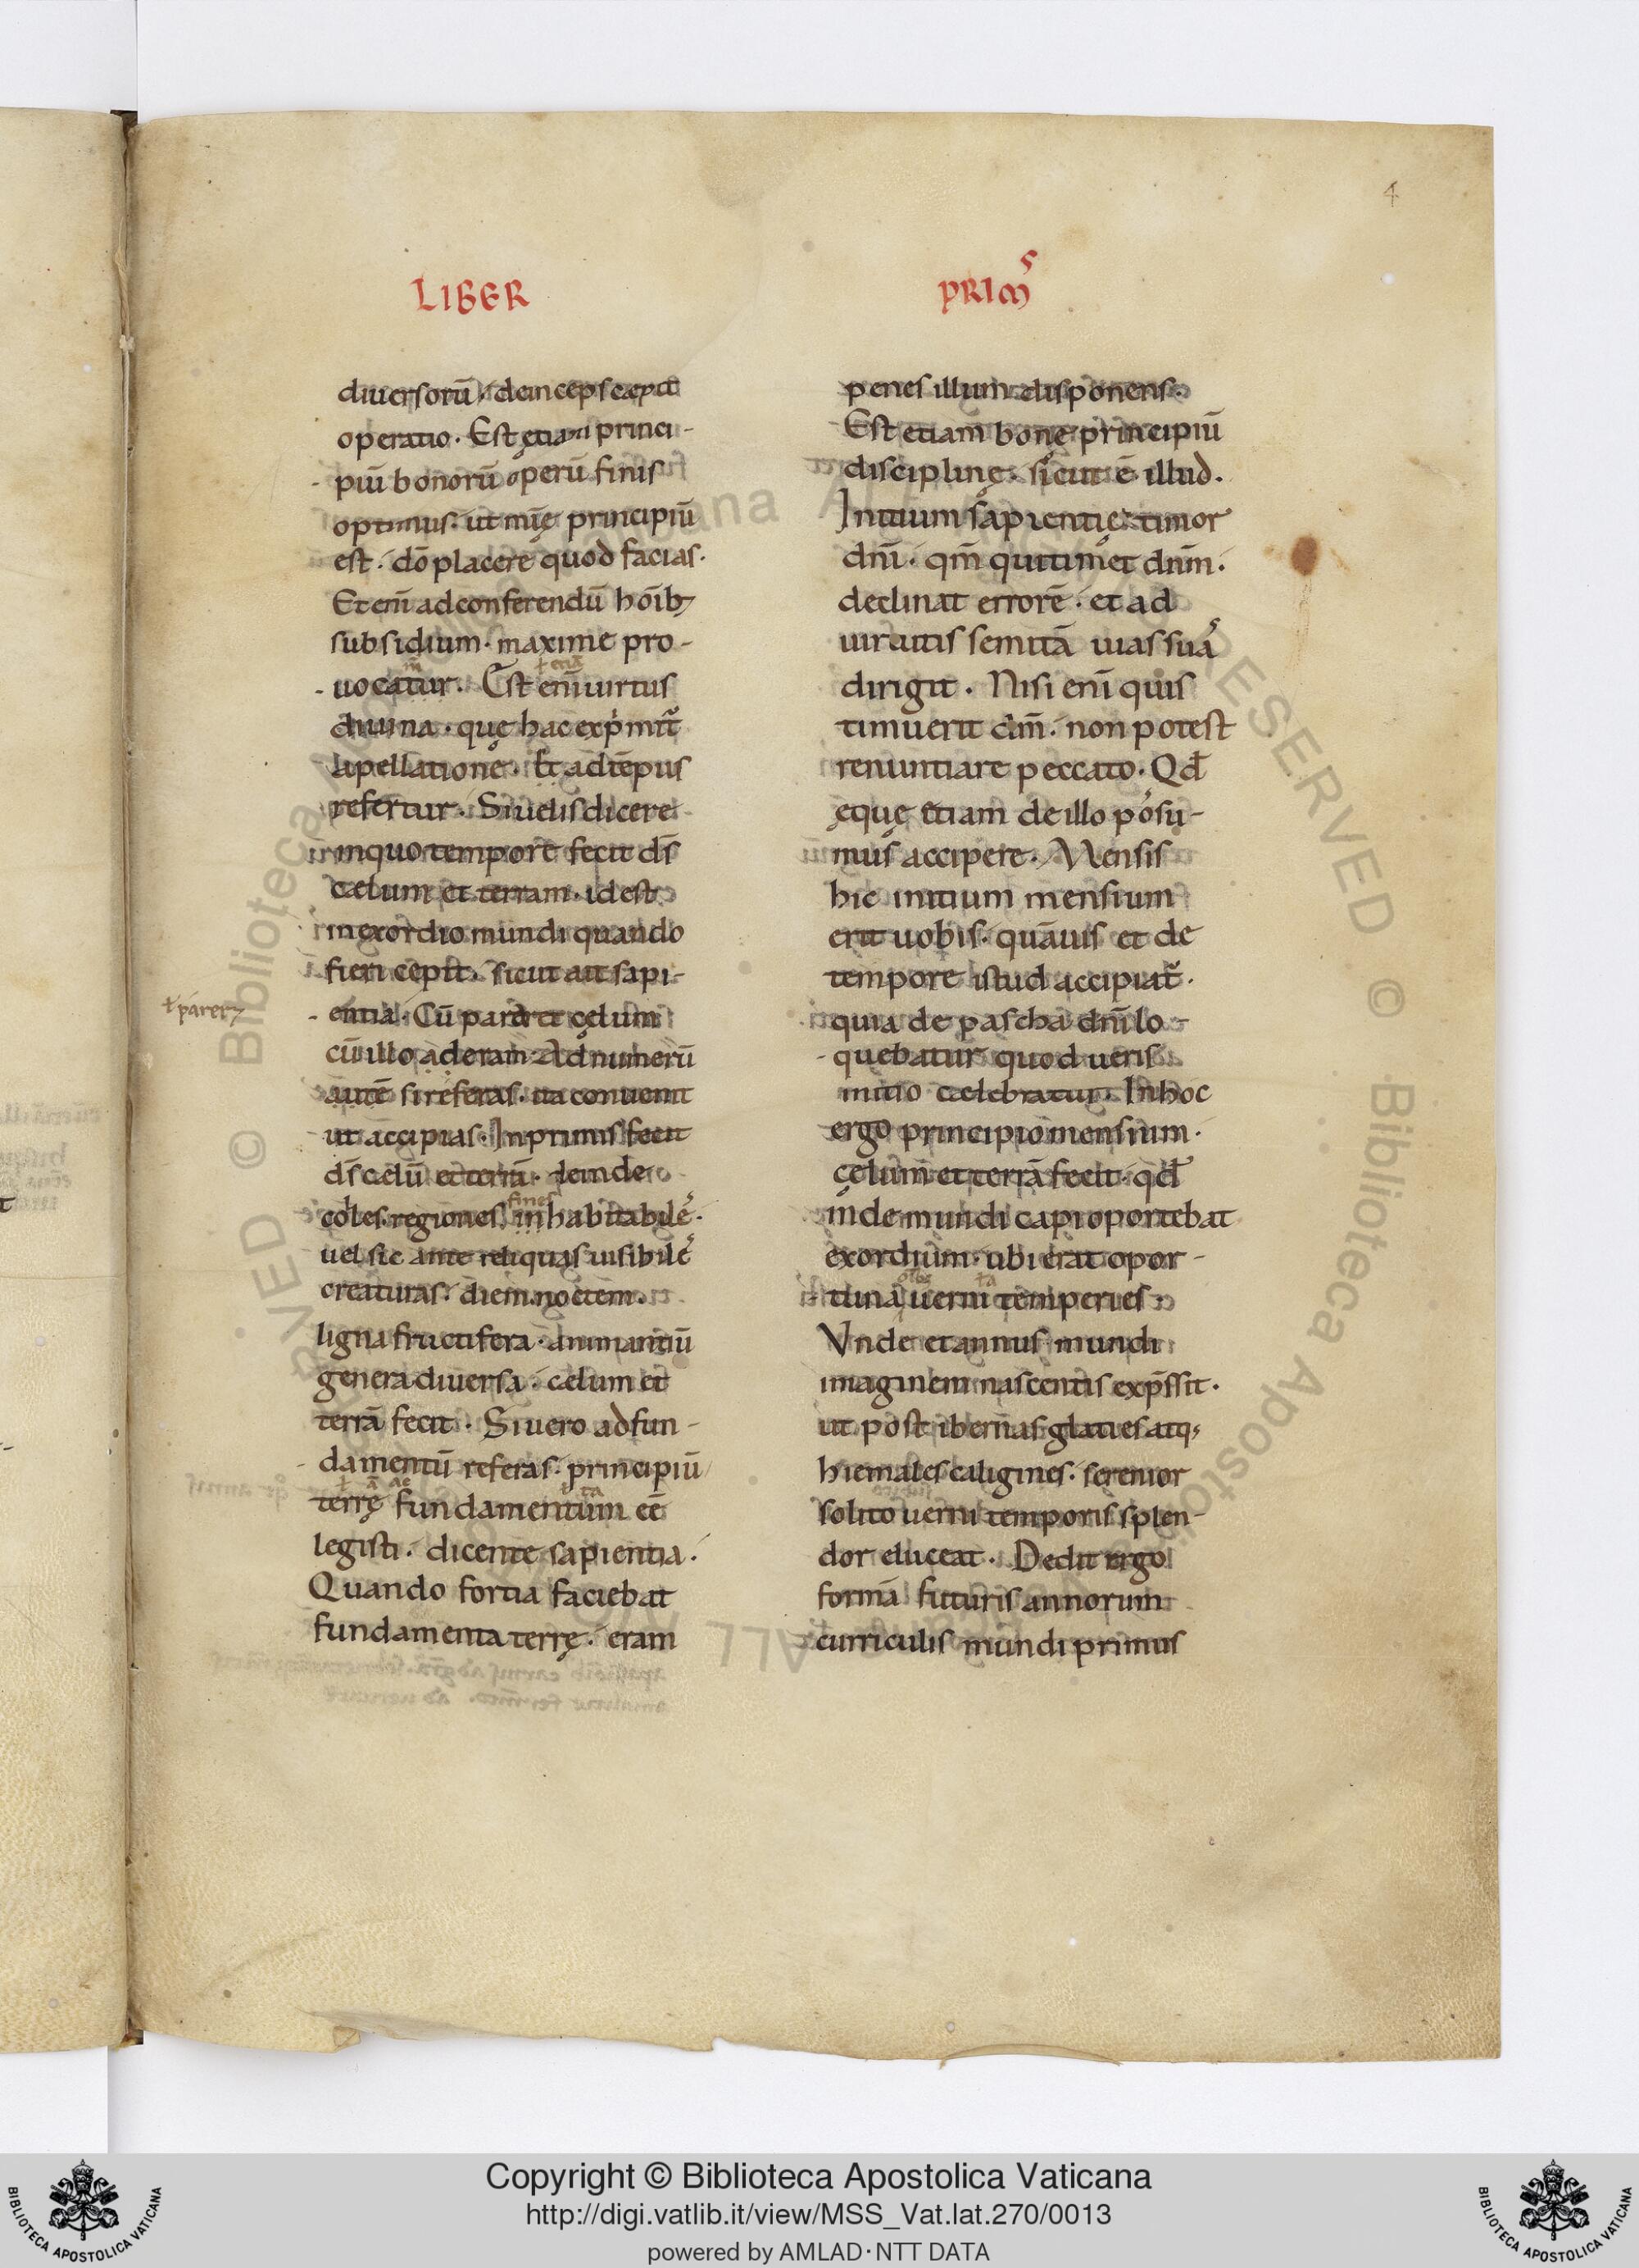 4
LIBER
diuersorū, deinceps cępit
operatio. Est ętiam princi-
piū bonorū operū finis
optimus. ut mīę principiū
est. dō placere quod facias.
Et eni̅ ad conferendū hoībꝫ
subsidium. maxime pro-
uocatur. Est eni̅ uirtus
diuina. quę hac exprimit̃
apellatione. Et ad tēpus
refertur. Si uelis dicere
in quo tempore fecit ds̄
cælum et terram. id est
in exordio mundi quando
fieri cepit. sicut ait sapi-
entia. Cū pararet cęlum
cū illo aderam. Ad numerū
autē si referas. ita conuenit
ut accipias. In primis fecit
ds̄ cælū et terrā. deinde
colles. regiones. fines inhabitabiles.
uel sic ante reliquas uisibiles
creaturas. diem. noctem.
ligna fructifera. animantiū
genera diuersa. cælum et
terrā fecit. Si uero ad fun-
damentū referas. principiū
terrę fundamentum eē
legisti. dicente sapientia.
Quando fortia faciebat
fundamenta terrę. eram
PRIMˢ
penes illum disponens.
Est etiam bonę principiū
disciplinę. sicut ē illud.
Initium sapientię timor
dn̄i. qm̄ qui timet dn̄m.
declinat errorē. et ad
uirtutis semitā uias suas
dirigit. Nisi eni̅ quis
timuerit dm̄. non potest
renuntiare peccato. Qđ
ęque etiam de illo possu-
mus accipere. Mensis
hic initium mensium
erit uobis. quāuis et de
tempore istud accipiat̃.
quia de pascha dn̄i lo-
quebatur quod ueris
initio celebratur. In hoc
ergo principio mensium.
cęlum et terrā fecit. qđ
inde mundi capi oportebat
exordium. ubi erat opor-
tuna uerni temperies.
Vnde et annus mundi
imaginem nascentis exp̄ssit.
ut post ibernas glaties atqꝫ
hiemales caligines. serenior
solito uerni temporis splen-
dor eluceat. Dedit ergo
formā futuris annorum
curriculis mundi primus
ł pareret
Copyright © Biblioteca Apostolica Vaticana
http://digi.vatlib.it/view/MSS_Vat.lat.270/0013
powered by AMLAD·NTT DATA
BIBLIOTECA APOSTOLICA VATICANA
BIBLIOTECA APOSTOLICA VATICANA